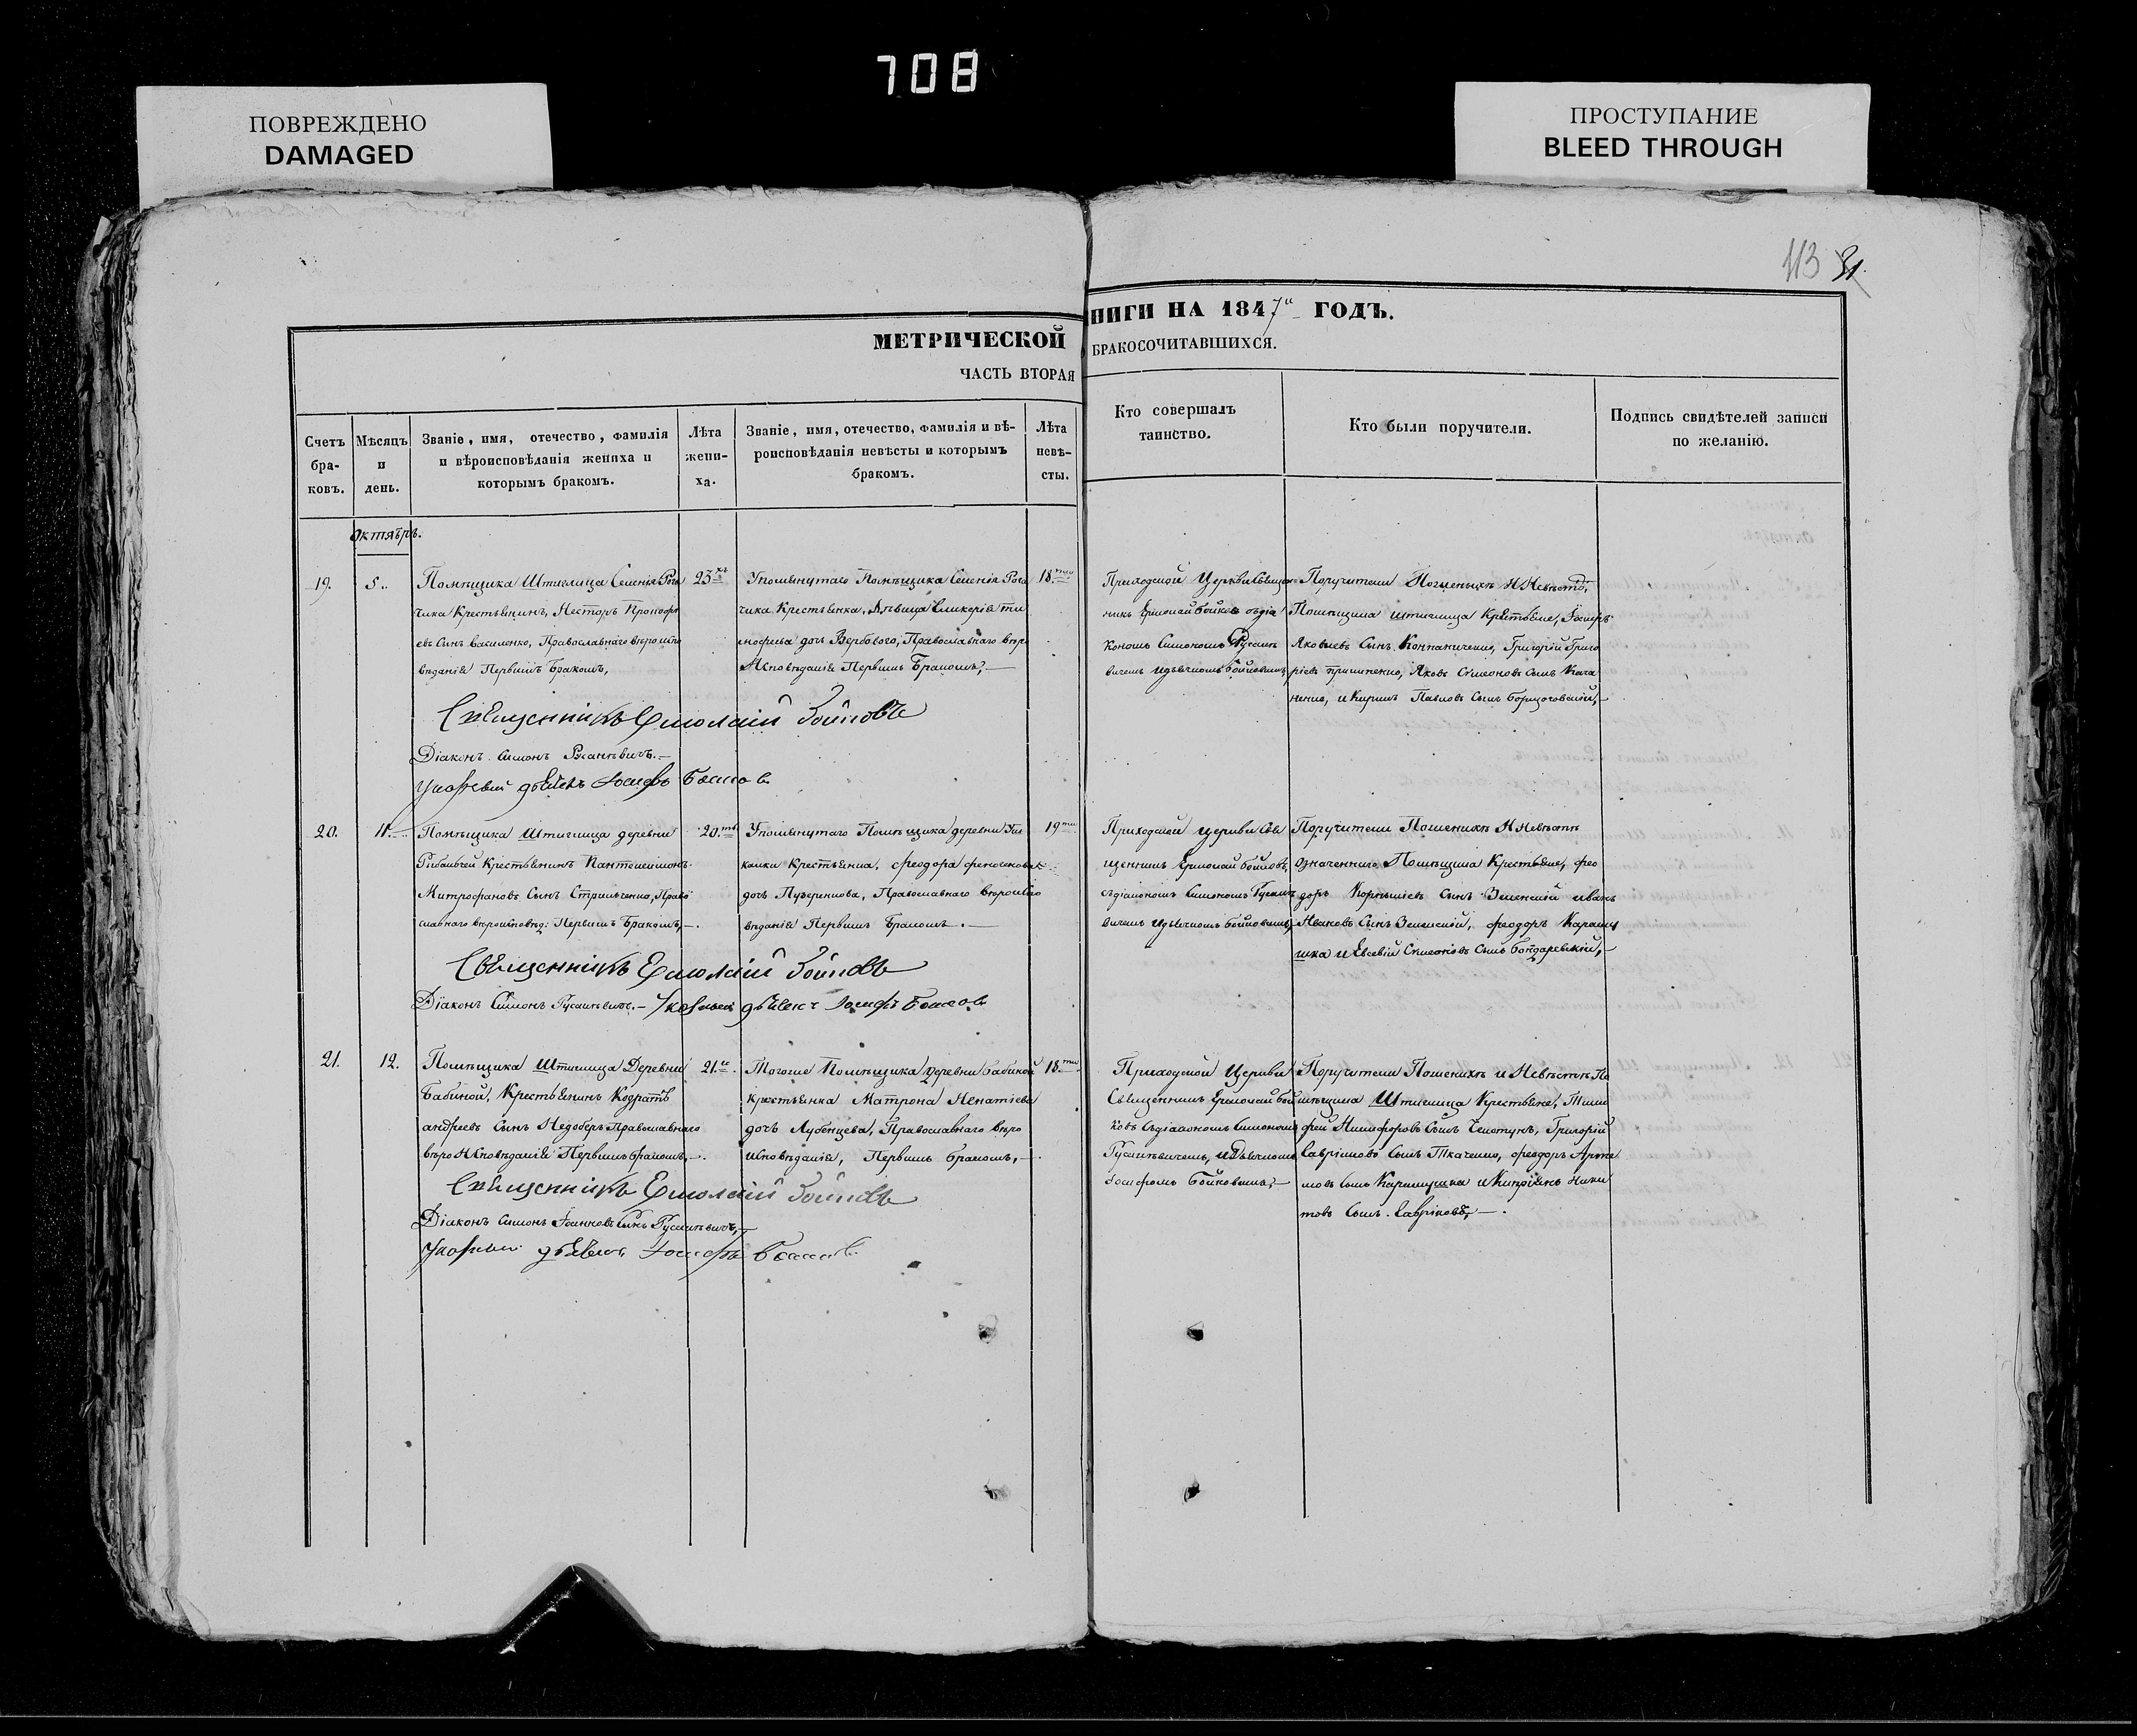 708
ПОВРЕЖДЕНО
DAMAGED
ПРОСТУПАНИЕ
BLEED THROUGH
113 31.
МЕТРИЧЕСКОЙ
ЧАСТЬ ВТОРАЯ
НИГИ НА 1847й ГОДЪ.
БРАКОСОЧИТАВШИХСЯ.
Счетъ
бра-
ковъ.
Мѣсяцъ
и
день.
Званіе, имя, отечество, фамилія
и вѣроисповѣданія жениха и
которымъ бракомъ.
Лѣта
жени-
ха.
Званіе, имя, отечество, фамилія и вѣ-
роисповѣданія невѣсты и которымъ
бракомъ.
Лѣта
невѣ-
сты.
Кто совершалъ
таинство.
Кто были поручители.
Подпись свидѣтелей записи
по желанію.
19.
5.
Помѣщика Штиглица Сѣленія Рога
чика Крестьянинъ, Несторъ Прокофі
евъ Сынъ Василенко, Православнаго вѣроиспо
вѣданія Первимъ Бракомъ,
23хъ
Упомянутаго Помѣщика Сѣленія Рога
чика Крестьянка, Дѣвица Гликерія Ти
мофѣева дочь Вербового, Православнаго вѣро
Исповѣданія Первимъ Бракомъ,
18.ти
Приходской Церкви Священ
никъ Ермолай Бойковъ съ діа
кономъ Симономъ Русанѣ
вичемъ и дьячкомъ Бойковымъ,
Поручители По женихѣ И Невѣстѣ,
Помѣщика Штиглица Крестьяне,
Яковлевъ Сынъ Григорій Григо
рієвъ Яковъ Симеоновъ Сынъ
и Кирилъ Павловъ Сынъ
Священникъ Ермолай Бойковъ
Діаконъ Симонъ Русанѣвичъ.
дьячекъ Іосифъ Бойковъ
20.
11.
Помѣщика Штиглица деревни
Рибальчей Крестьянинъ Пантелеимонъ
Митрофановъ Сынъ Стрильченко, Право
славнаго вѣроисповѣд: Первимъ Бракомъ,
20.ть
Упомянутаго Помѣщика деревни Уш
калки Крестьянка, Феодора
дочь Православнаго вѣроиспо
вѣданія Первимъ Бракомъ.
19ти
Приходской Церкви Свя
щенникъ Ермолай Бойковъ,
съ діакономъ Симономъ Русанѣ
вичемъ и дьячкомъ Бойковымъ,
Поручители По женихѣ И Невѣстѣ
означеннаго Помѣщика Крестьяне, Фео
доръ Сынъ Зеленскій Иванъ
Ивановъ Сынъ Зеленскій, Феодоръ Карапу
шка и Евсевій Симеоновъ Сынъ Бондаревскій,
Священникъ Ермолай Бойковъ
Діаконъ Симонъ Русанѣвичъ. дьячекъ Іосифъ Бойковъ
21.
12.
Помѣщика Штиглица Деревни
Бабиной, Крестьянинъ Кодратъ
Андреевъ Сынъ Недоберъ Православнаго
вѣро Исповѣданія Первимъ Бракомъ,
21.
Тогоже Помѣщика деревни Бабиной
крестьянка Матрона Игнатіева
дочь Лубенцева, Православнаго вѣро
исповѣданія, Первимъ Бракомъ,
18.ти
Приходской Церкви
Священникъ Ермолай Бой
ковъ Съ діакономъ Симономъ
Русанѣвичемъ, и Дьячкомъ
Іосифомъ Бойковымъ,
Поручители По женихѣ и Невѣстѣ По
мѣщика Штиглица Крестьяне, Тимо
фей Никифоровъ Сынъ Григорій
Сынъ Ткаченко, Феодоръ Арте
мовъ Сынъ Карапушка и Кипріянъ Ники
товъ Сынъ
Священникъ Ермолай Бойковъ
Діаконъ Симонъ Іоанновъ Сынъ Русанѣвичъ,
дьячекъ Іосифъ Бойковъ